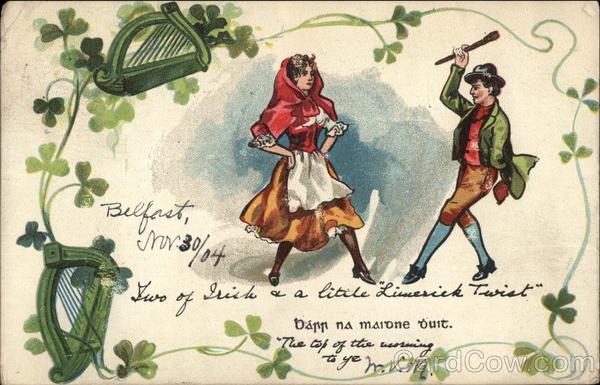 Belfast,
Nov 30/04
Two of Irish & a little "Limerick Twist"
Bárr na maidne duit.
"The top of the morning
to ye
CardCow.com